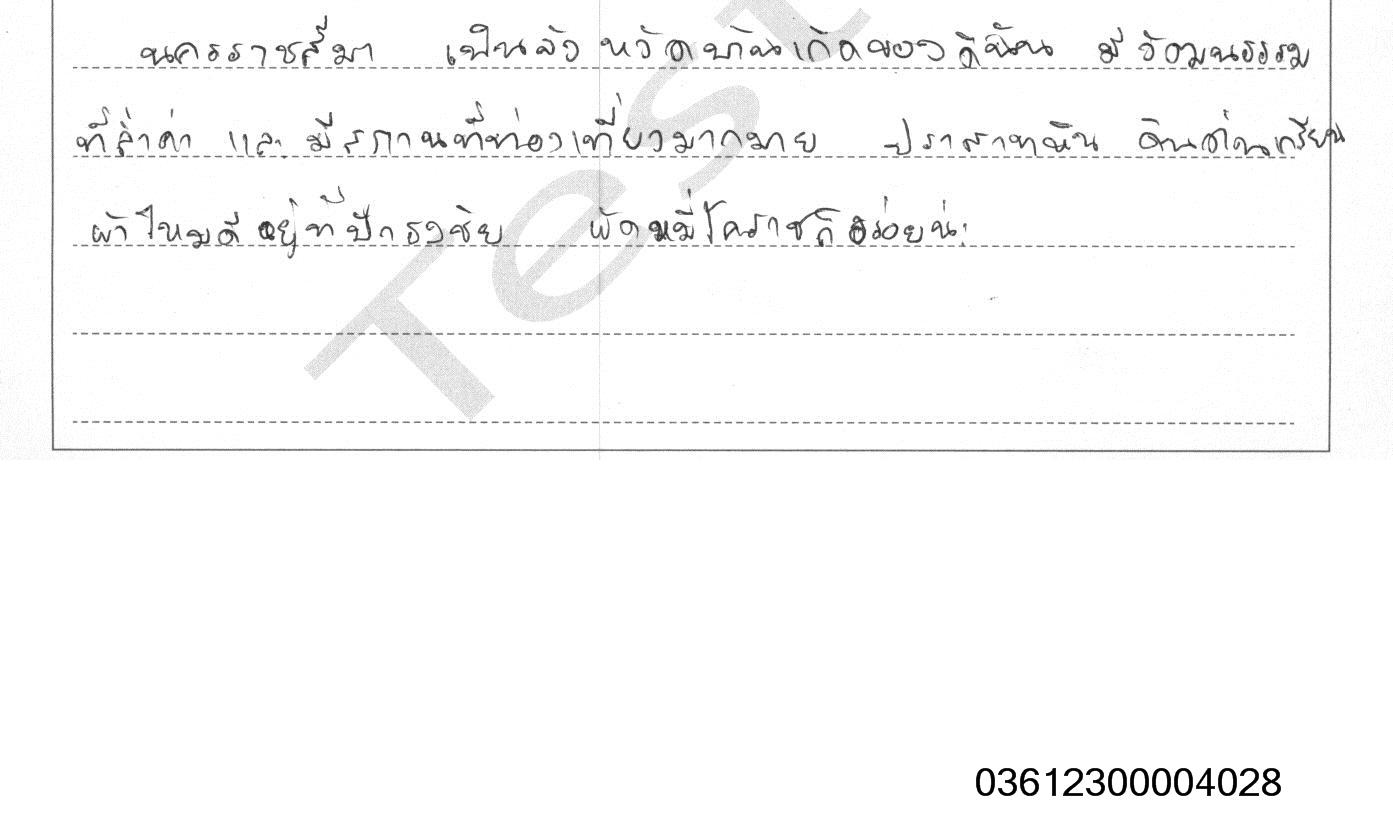 นครราชสีมา เป็นจังหวัดบ้านเกิดของดิฉัน มีวัฒนธรรม
ที่ล้ำค่า และ มีสถานที่ท่องเที่ยวมากมาย ปราสาทหิน ดินด่านเกวียน
ผ้าไหมดี อยู่ที่ปักธงชัย ผัดหมี่โคราชก็อร่อยน่ะ
Test
03612300004028